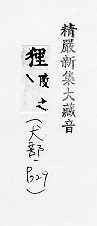 精嚴新集大藏音
狸 陵之(犬部·P29)